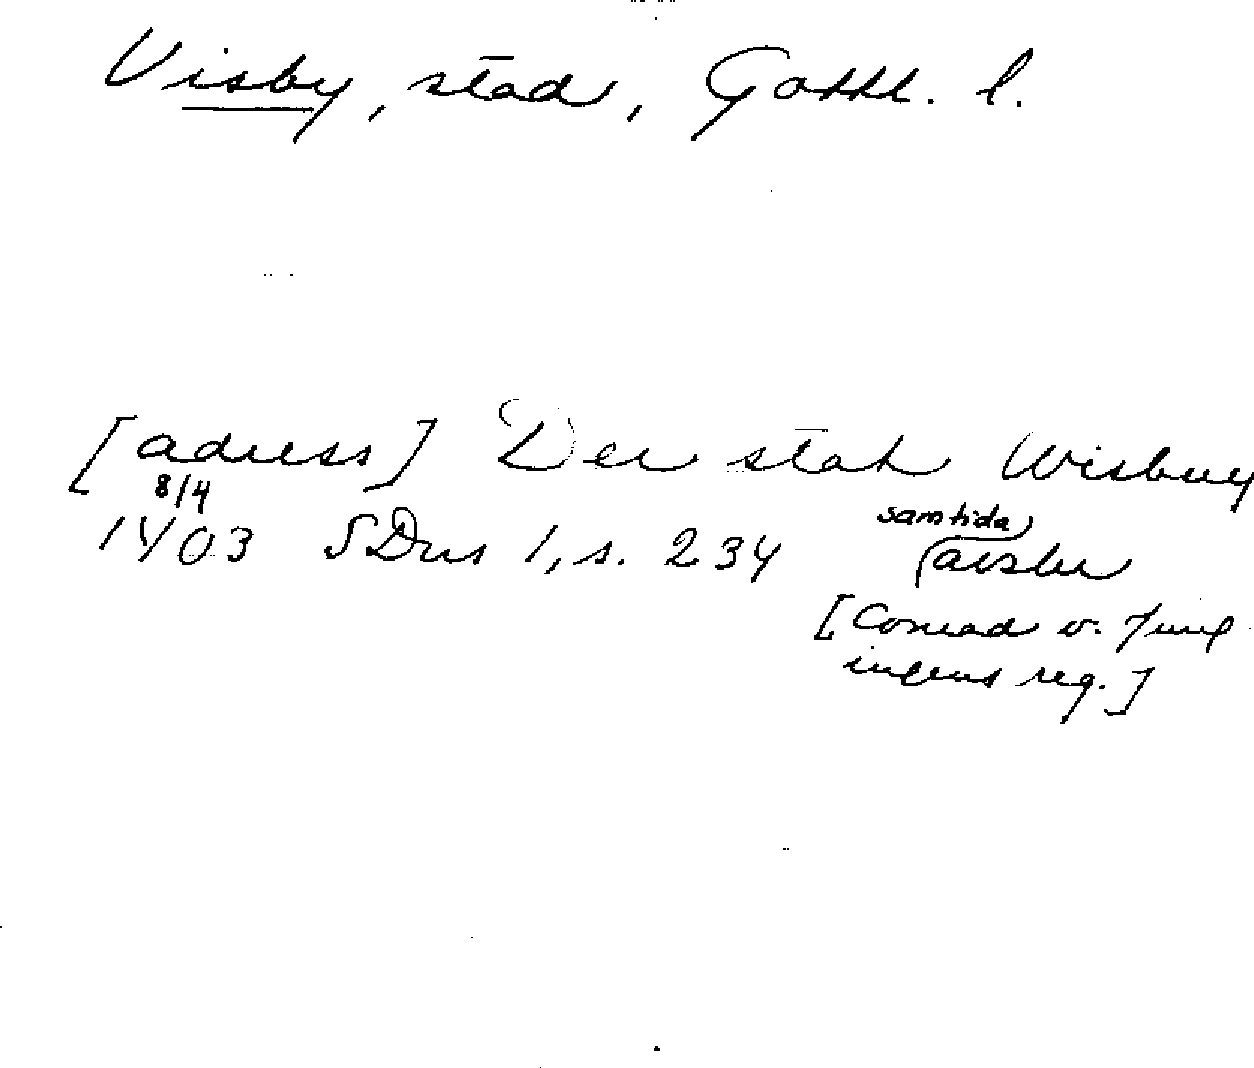 Visby, stad, Gottl. l.
[adress] Der stat Wisbuy
8/4
1403 SDns 1, s. 234 samtida
avskr
[Conrad v. Jung
ingens reg.]